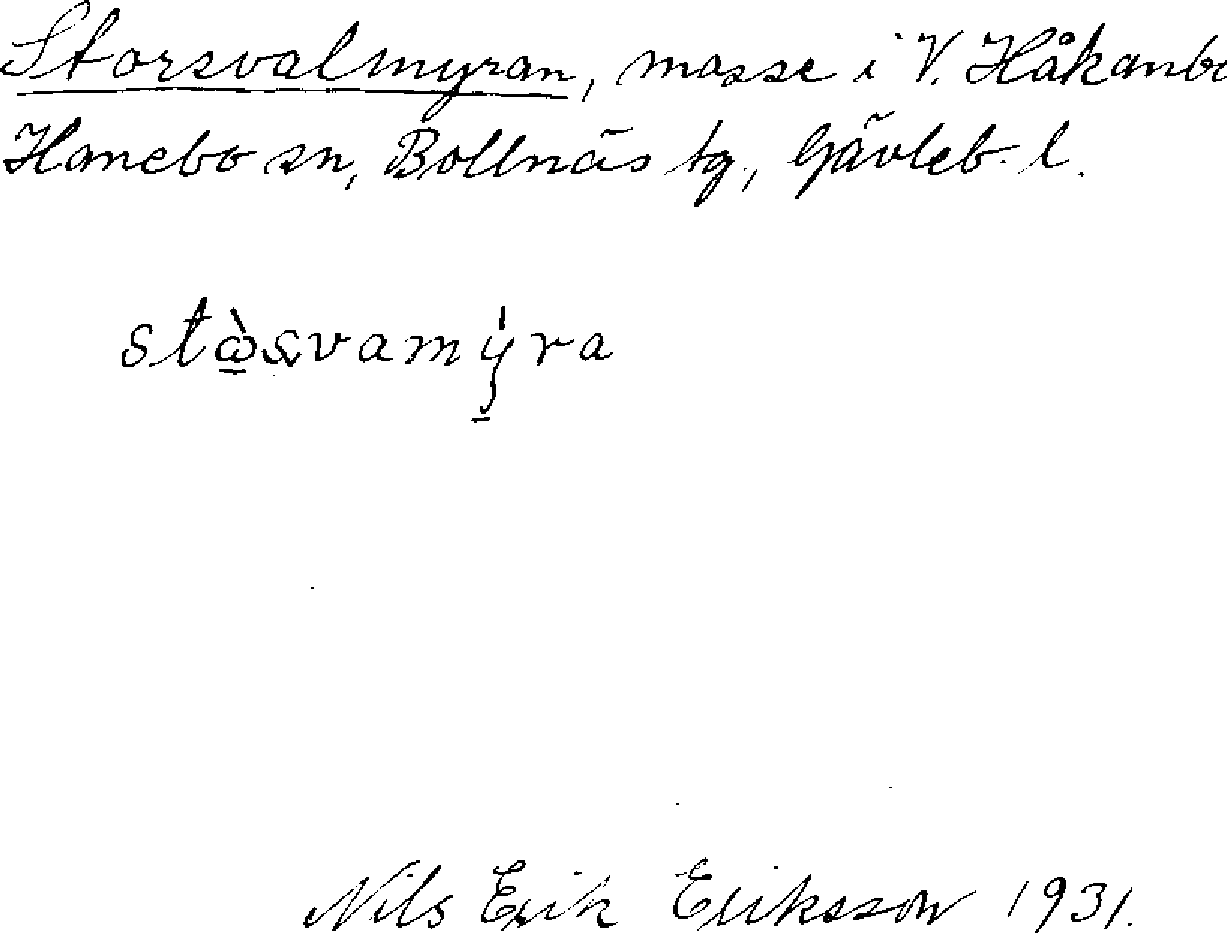 Storsvalmyran, mosse i V. Håkanbo
Hanebo sn, Bollnäs tg, Gävleb. l.
stὼ̲svamy̲̍ra
Nils Erik Eriksson 1931.